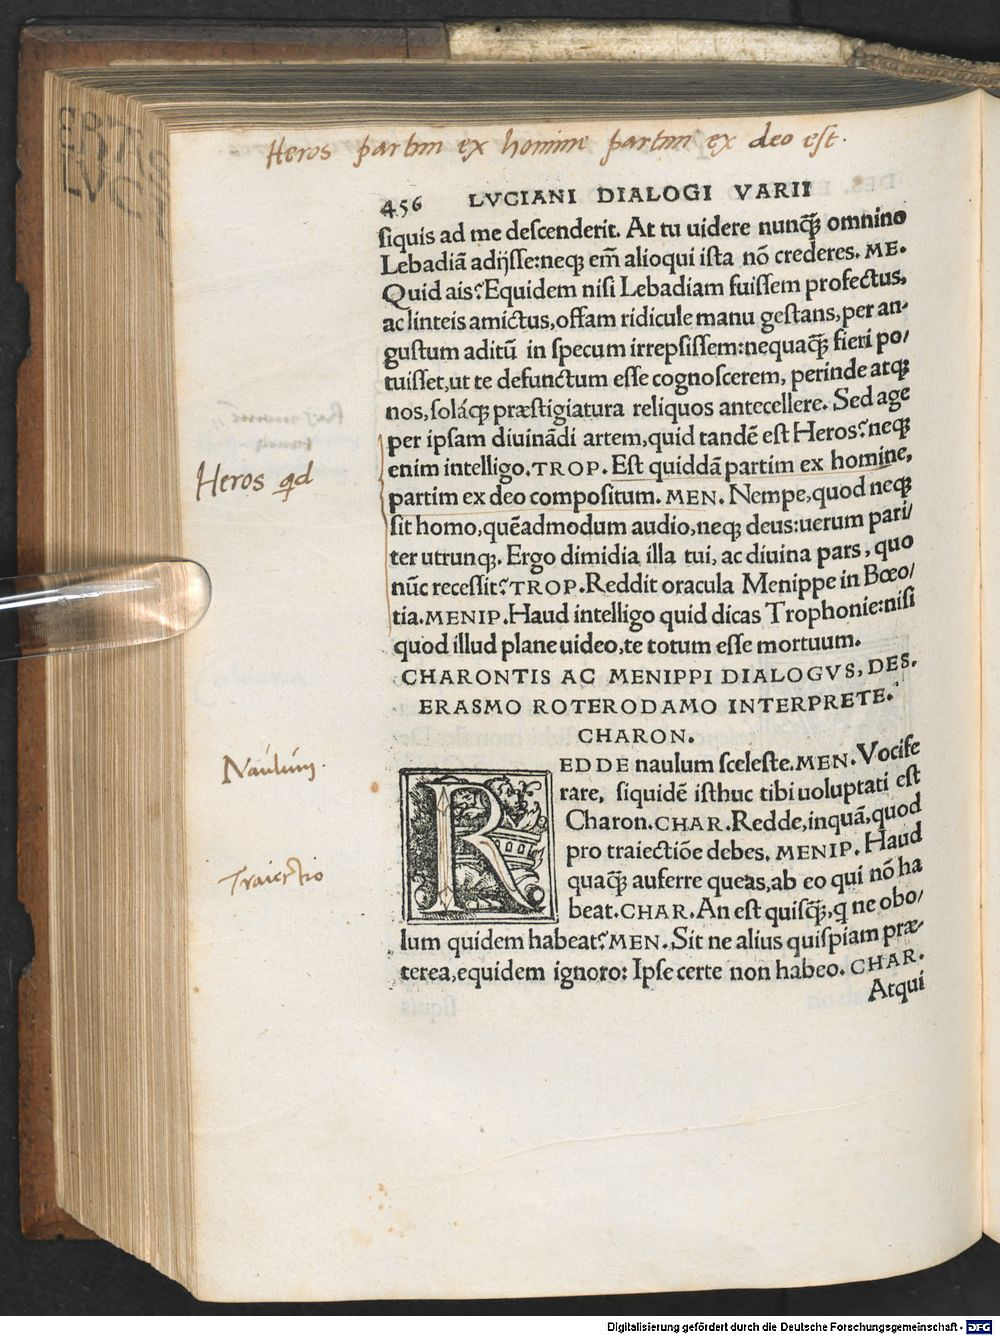 Heros partim ex homine partim ex deo est.
456 LVCIANI DIALOGI VARII
ſiquis ad me deſcenderit. At tu uidere nunq̃ꝫ omnino
Lebadiã adijſſe:neqꝫ em̃ alioqui iſta nõ crederes. ME.
Quid ais? Equidem niſi Lebadiam fuiſſem profectus,
ac linteis amictus, offam ridicule manu geſtans, per an-
guſtum aditũ in ſpecum irrepſiſſem:nequaq̃ꝫ fieri po/
tuiſſet, ut te defunctum eſſe cognoſcerem, perinde atqꝫ
nos, ſoláqꝫ præſtigiatura reliquos antecellere. Sed age
per ipſam diuinãdi artem, quid tandẽ eſt Heros? neqꝫ
enim intelligo. TROP. Eſt quiddã partim ex homine,
Heros qd
partim ex deo compoſitum. MEN. Nempe, quod neqꝫ
ſit homo, quẽadmodum audio, neqꝫ deus:uerum pari/
ter utrunqꝫ. Ergo dimidia illa tui, ac diuina pars, quo
nũc receſſit? TROP. Reddit oracula Menippe in Bœo/
tia. MENIP. Haud intelligo quid dicas Trophonie:niſi
quod illud plane uideo, te totum eſſe mortuum.
CHARONTIS AC MENIPPI DIALOGVS, DES.
ERASMO ROTERODAMO INTERPRETE.
CHARON.
REDDE naulum ſceleſte. MEN. Vocife
Naulum.
rare, ſiquidẽ iſthuc tibi uoluptati eſt
Charon. CHAR. Redde, inquã, quod
pro traiectiõe debes. MENIP. Haud
Traiectio
quaq̃ꝫ auferre queas, ab eo qui nõ ha
beat. CHAR. An eſt quiſq̃ꝫ, q ne obo/
lum quidem habeat? MEN. Sit ne alius quiſpiam præ-
terea, equidem ignoro: Ipſe certe non habeo. CHAR.
Atqui
Digitalisierung gefördert durch die Deutsche Forschungsgemeinschaft - DFG